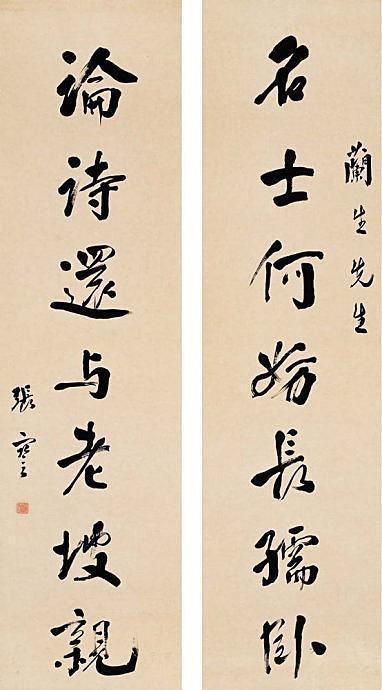 蘭生先生
名士何妨長孺卧
論詩還与老坡親
張謇